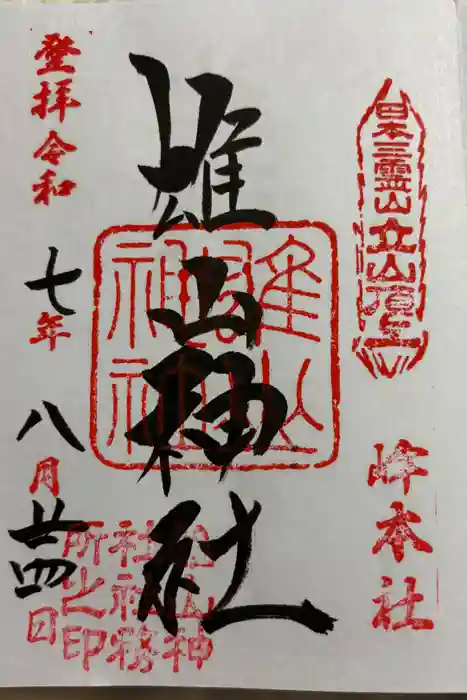 日本三霊山立山頂上
峰本社
雄山神社
雄山神社
雄山神
社社務
所之印
登拝令和
七年
八月
廿四日